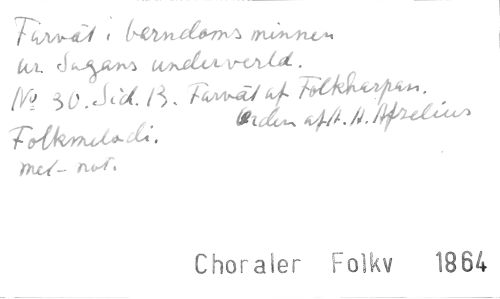 Farväl i barndoms minnen
ur Sagans underverld.
No 30. Sid. 13. Farväl af Folkharpan.
Orden af A. A. Afzelius
Folkmelodi.
mel-not.
Choraler Folkv 1864